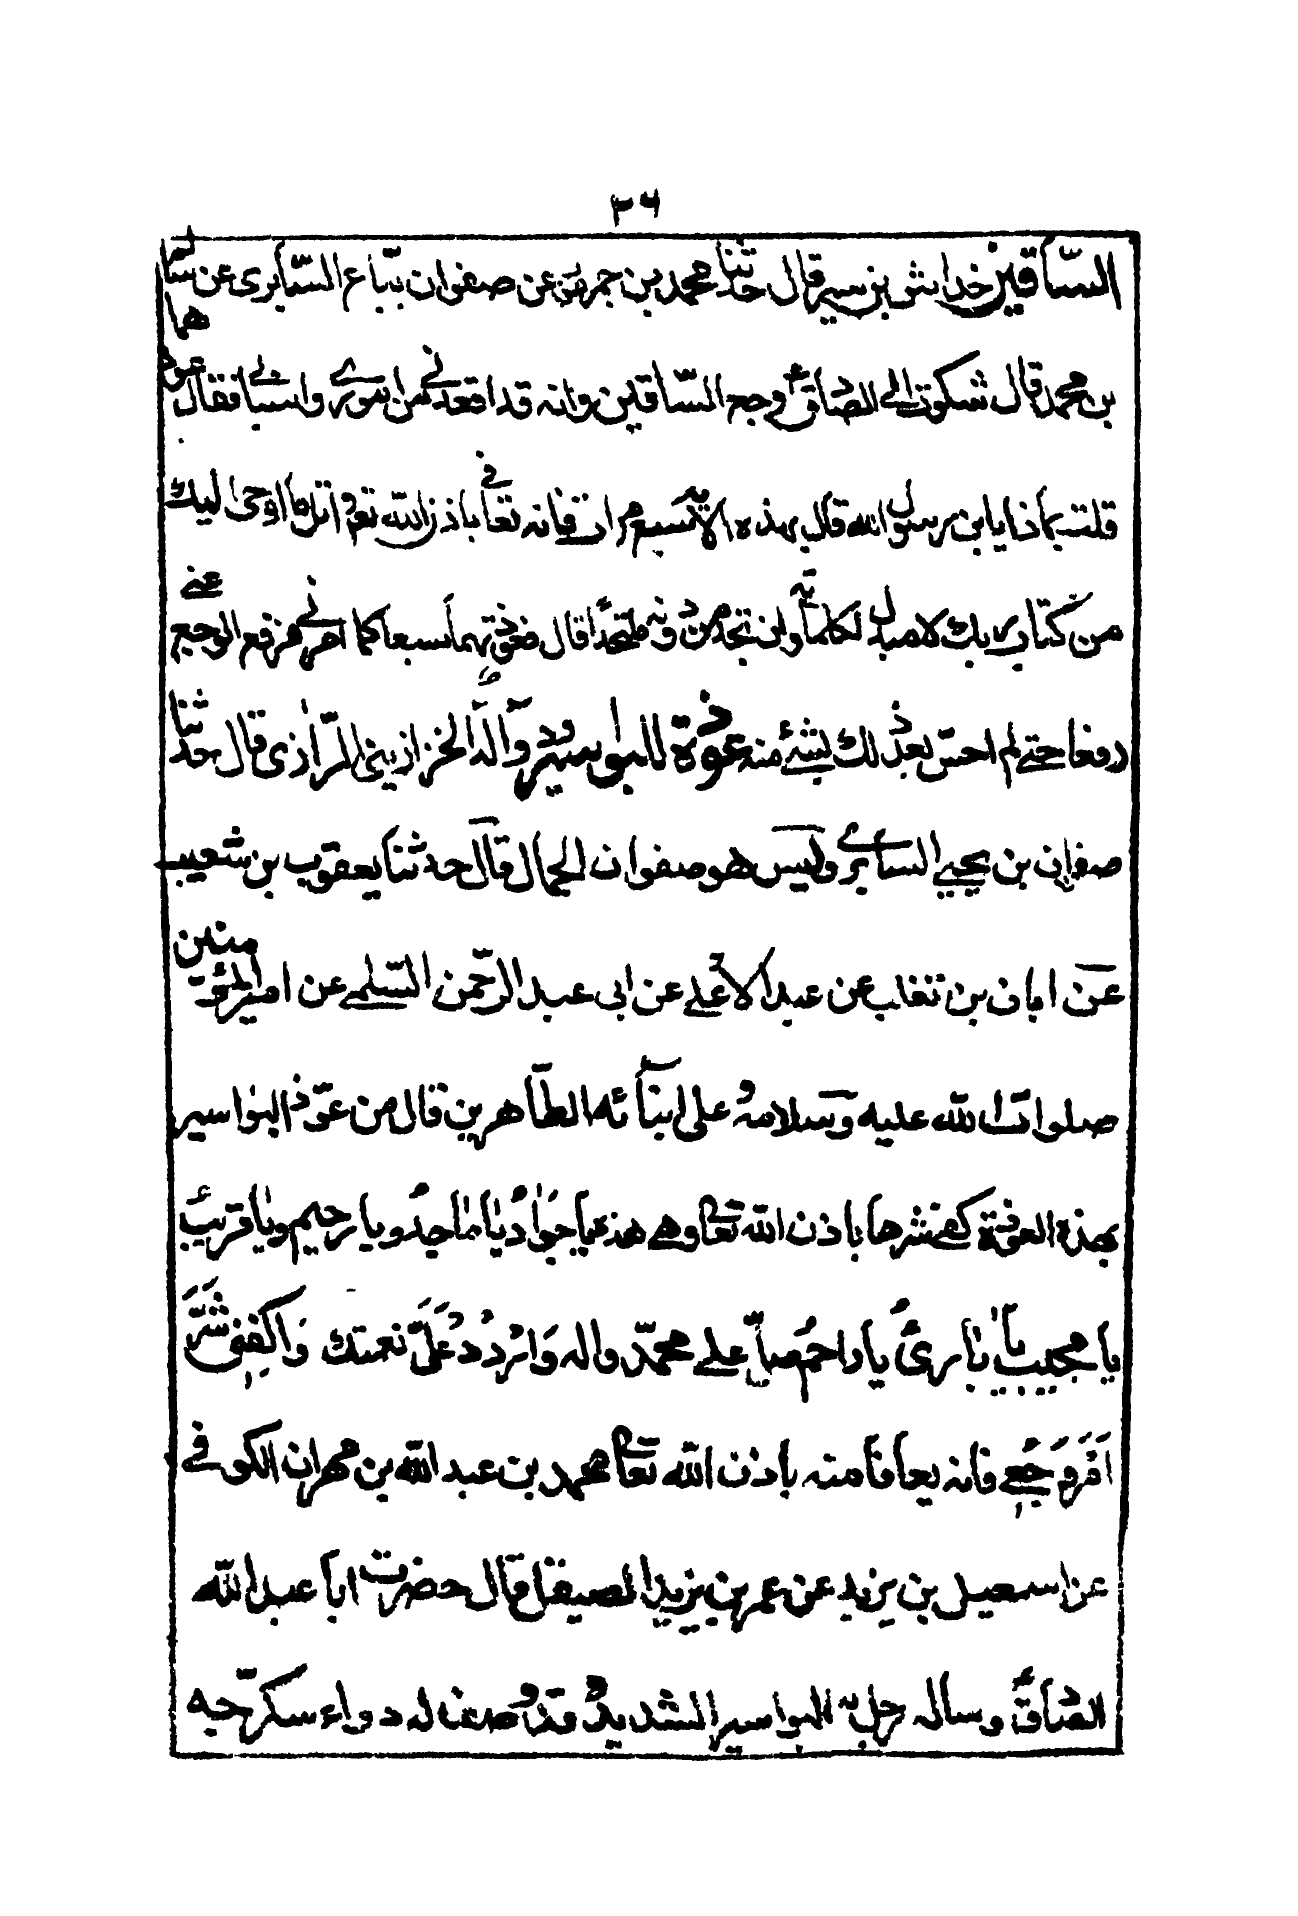 ٣٦
الساقين خداش بن سبرة قال حدثنا محمد بن جمهور عن صفوان بيّاع السّابرى عن سالم
بن محمد قال شكوت الى الصّادق ع وجع السّاقين وانه قد اقعدنى عن امورى واسبابى فقال عوذهما
قلت بماذا يا بن رسول الله قال بهذه الاية سبع مرات فانه تعافى باذن الله تعالى واتل ما اوحى اليك
من كتاب ربك لا مبدل لكلماته ولن تجد من دونه ملتحداً قال فعوذتهما سبعا كما امرنى فرفع الوجع عنى
رفعا حتى لم احسّ بعد ذلك بشئ منه عوذة للبواسير وآله الخزازينى الرّازى قال حدّثنا
صفوان بن يحيى السابرى وليس هو صفوان الجمال قال حدثنا يعقوب بن شعيب
عن ابان بن تغلب عن عبد الاعلى عن ابى عبد الرحمن السّلمى عن امير المؤمنين
صلوات الله عليه وسلامه على ابنآئه الطّاهرين قال من عوّذ البواسير
بهذه العوذة كفى شرها باذن الله تعالى وهى هذه يا جَوٰادُ يٰا مٰاجِدُ ويا رحيم ويٰا قريبُ
يٰا مجيب يٰا بٰارئُ يا راحم صلّ على محمّد واله وَارْدُدْ عَلَىَّ نعمتك وَاكْفِنِى شَرَّ
اَمْرِ وَجَعِى فانه يعافا منه باذن الله تعالى محمد بن عبد الله بن مهران الكوفى
عن اسمعيل بن يزيد عن عمر بن يزيد الصيقل قال حضرت ابا عبد الله
الصّادقَ وساله رجل به البواسير الشديدُ وقد وصف له دواء سكرّجه